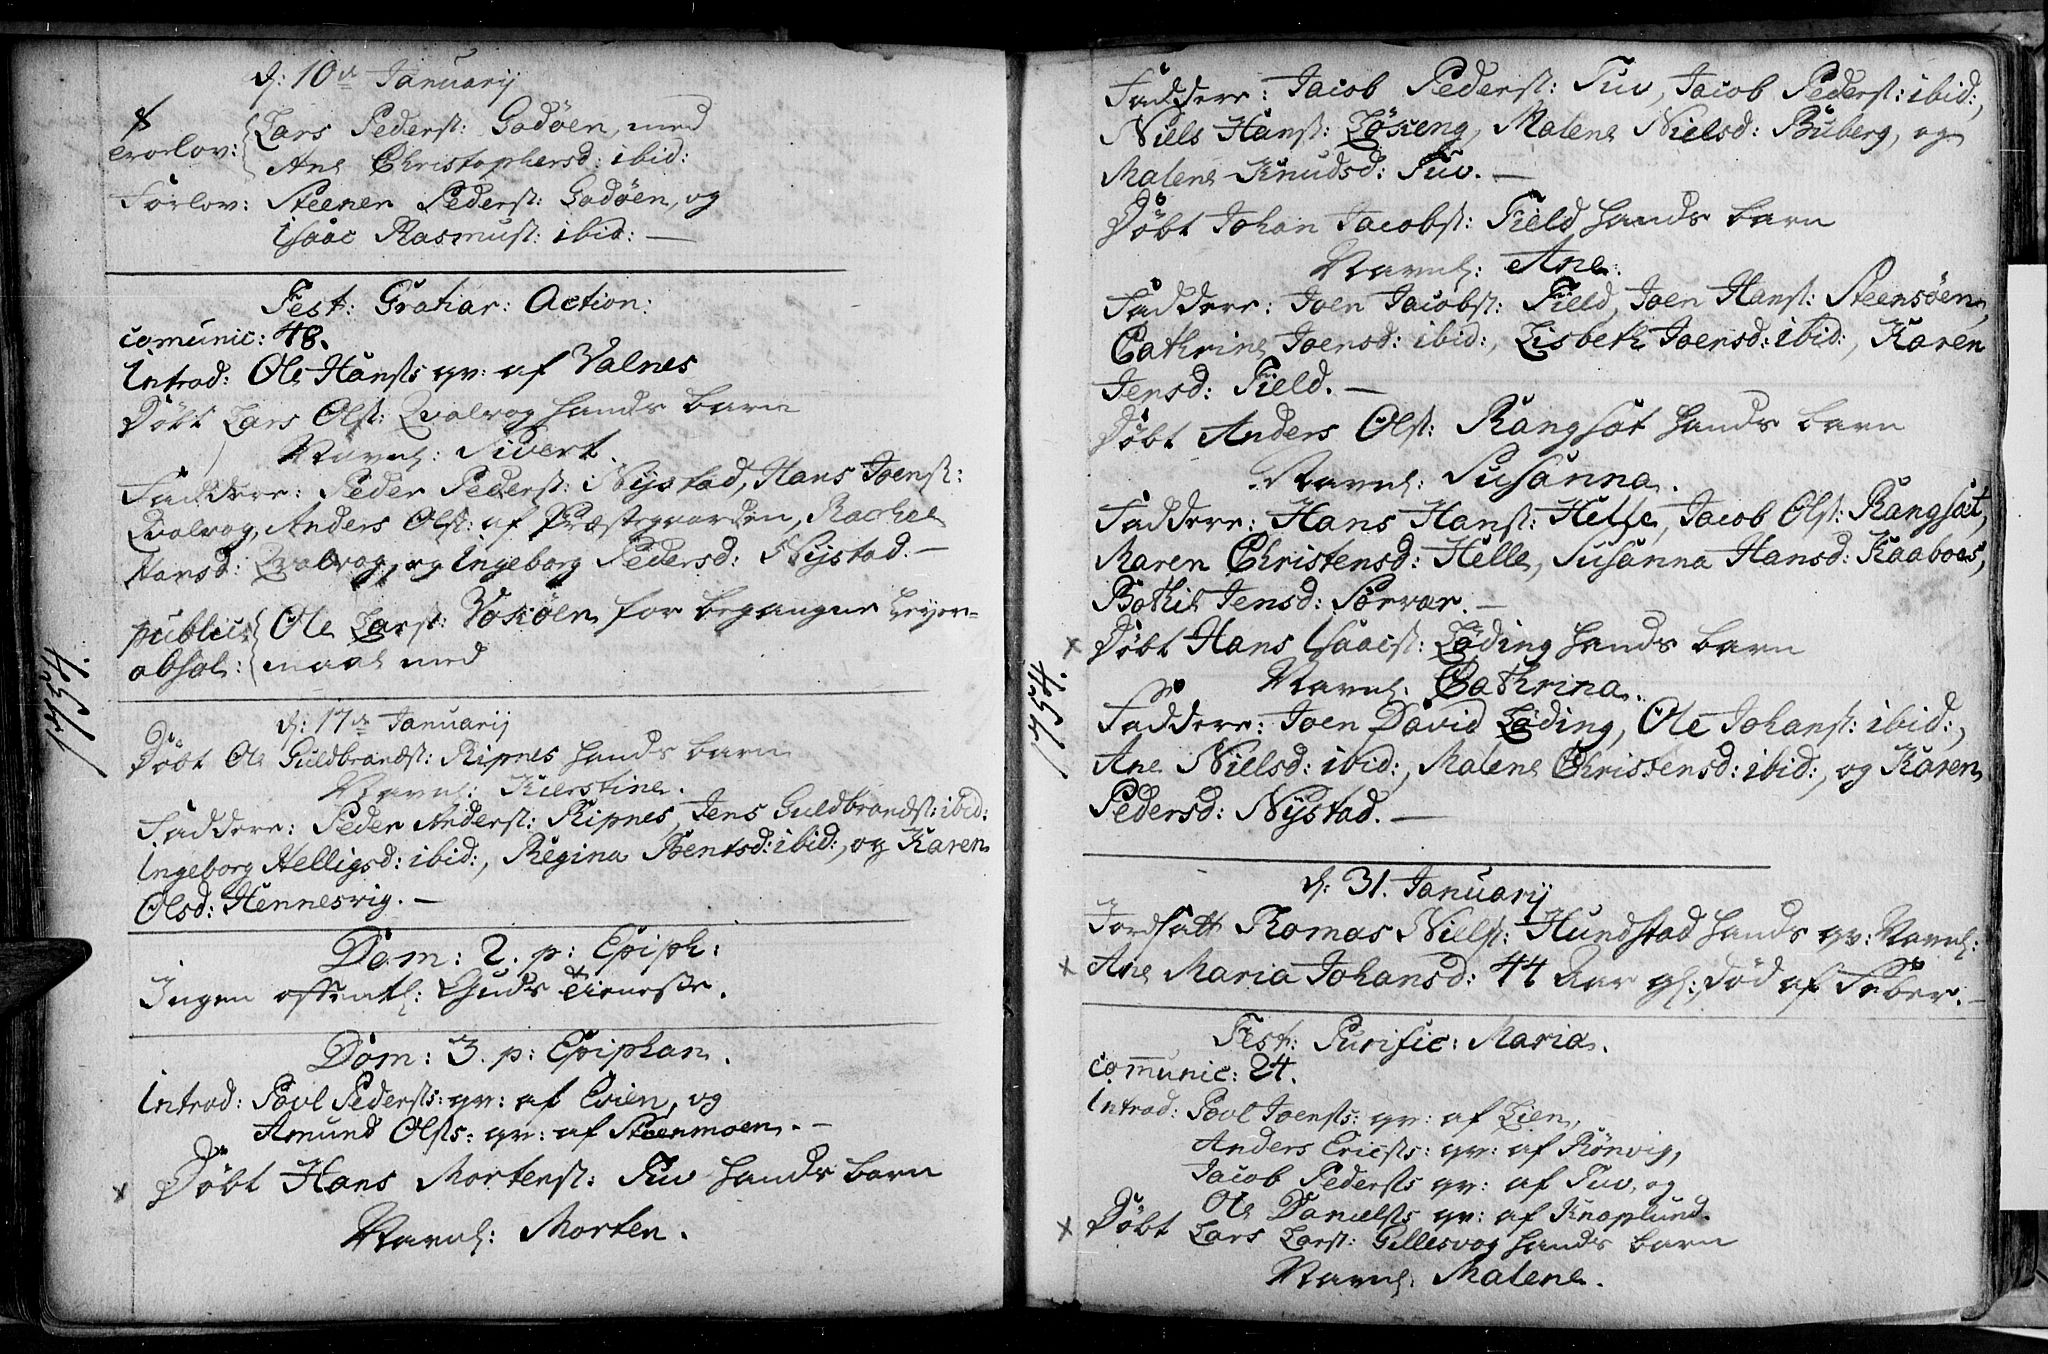 d: 10de Januarij
Trolov: Lars Peders: Godöen, med
Ane Christophersd: ibid:
Forlov: Steener Peders: Godöen, og
Isaac Rasmus: ibid: —
Fest: Gratiar: Action:
comunic: 48.
Introd: Ole Hanss qv: af Valnes
Döbt Lars Ols: Qvalvog hands barn
Navnl: Sivert.
Faddere: Peder Peders: Nÿstad, Hans Joens:
Qvalvog, Anders Ols: af Præstegaarden, Rachel
Hansd: Qvalvog, og Ingeborg Pedersd: Nÿstad. —
public: Ole Lars: Voxöen for begangne Leyer-
absol: maal med
1754.
d: 17de Januarij
Döbt Ole Guldbrands: Ripnes hands barn
Navnl: Kierstine.
Faddere: Peder Anders: Ripnes, Jens Guldbrands: ibid:
Ingeborg Helligsd: ibid:, Regina Bentsd: ibid:, og Karen
Olsd: Hennesvig. —
Dom: 2. p: Epiph:
Ingen offentl: Guds Tieneste.
Dom: 3. p: Epiphan.
Introd: Povl Pederss: qv: af Evien, og
Amund Olss: qv: af Steenmoen. —
x Döbt Hans Mortens: Tuv hands barn
Navnl: Morten.
Faddere: Jacob Peders: Tuv, Jacob Peders: ibid:,
Niels Hans: Löxeng, Malene Nielsd: Buberg, og
Malene Knudsd: Tuv. —
Döbt Johan Jacobs: Field hands barn
Navnl: Ane.
Faddere: Joen Jacobs: Field, Joen Hans: Steensöen,
Cathrine Joensd: ibid:, Lisbeth Joensd: ibid:, Karen
Jensd: Field. —
Döbt Anders Ols: Rangsat hands barn
Navnl: Susanna.
Faddere: Hans Hans: Helle, Jacob Ols: Rangsat,
Maren Christensd: Helle, Susanna Hansd: Kaaboes,
Bothil Jensd: Sørvær. —
x Döbt Hans Isaacs: Löding hands barn
Navnl: Cathrina.
1754.
Faddere: Joen David Löding, Ole Johans: ibid:,
Ane Nielsd: ibid:, Malene Christensd: ibid:, og Karen
Pedersd: Nÿstad. —
d: 31. Januarij
Jordsatt Thomas Niels: Hundstad hands qv: Navnl:
x Ane Maria Johansd: 44 Aar gl:, död af Feber. —
Fest: Purific: Maria.
comunic: 24.
Introd: Povl Joenss: qv: af Lien,
Anders Ericss: qv: af Rönvig,
Jacob Pederss qv: af Tuv, og
Ole Danielss qv: af Knaplund.
x Döbt Lars Lars: Gillesvog hands barn
Navnl: Malene.